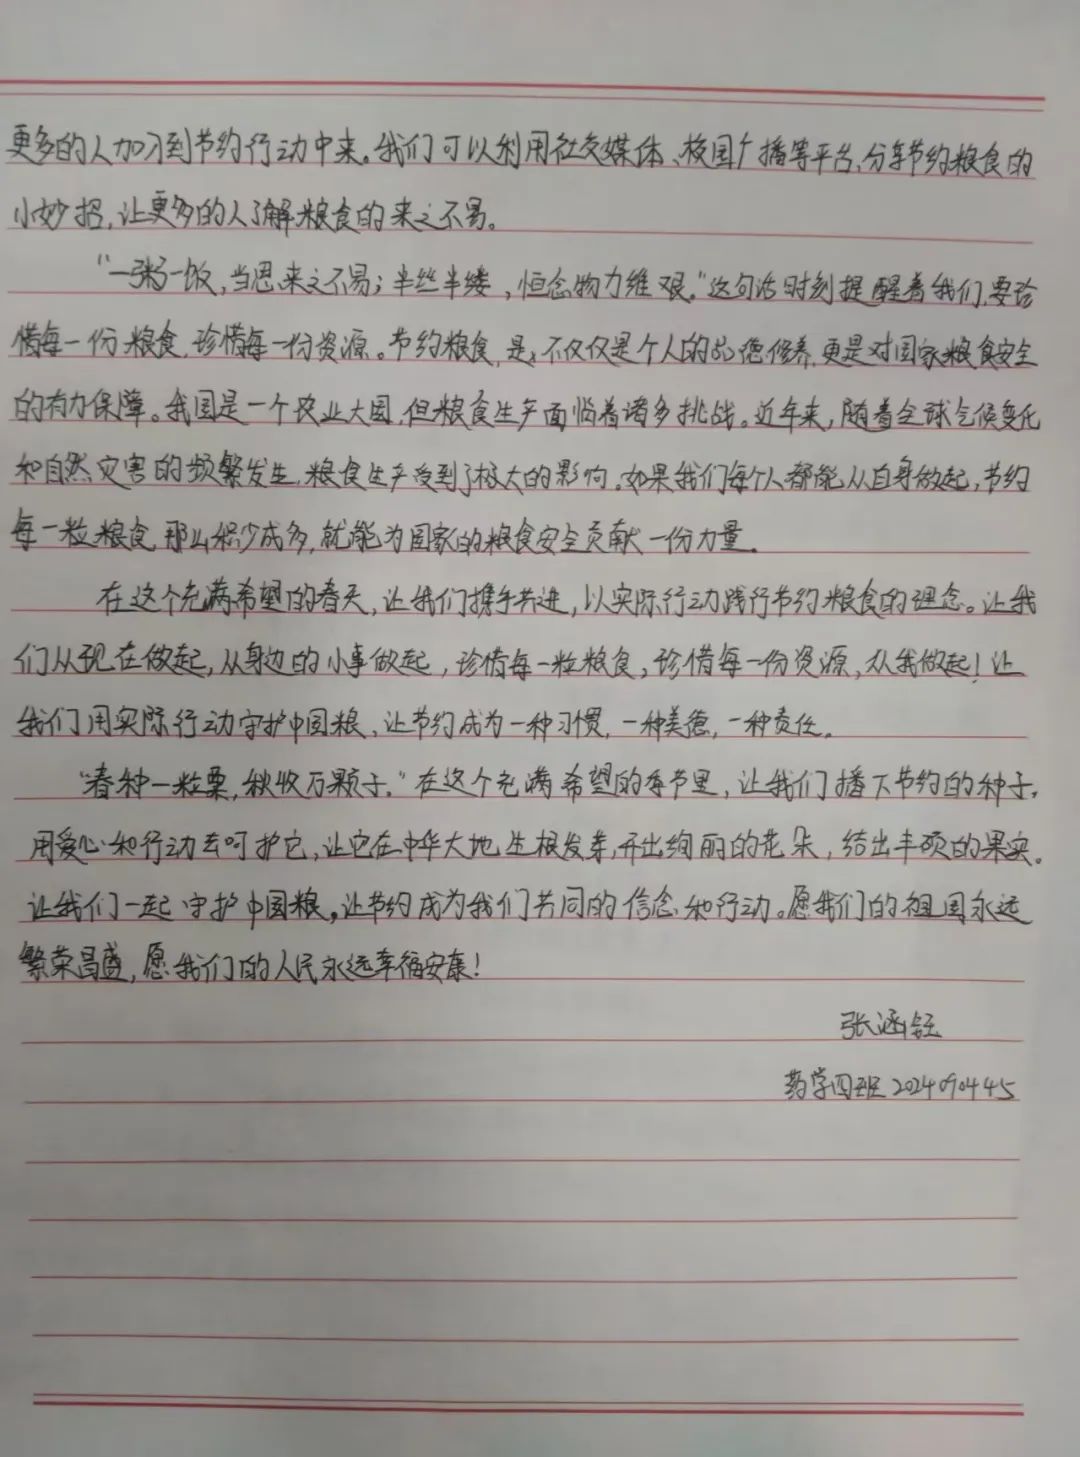 更多的人加入到节约行动中来。我们可以利用社交媒体、校园广播等平台,分享节约粮食的
小妙招,让更多的人了解粮食的来之不易。
“一粥一饭,当思来之不易;半丝半缕,恒念物力维艰。”这句话时刻提醒着我们,要珍
惜每一份粮食,珍惜每一份资源。节约粮食,是,不仅仅是个人的品德修养,更是对国家粮食安全
的有力保障。我国是一个农业大国,但粮食生产面临着诸多挑战。近年来,随着全球气候变化
和自然灾害的频繁发生,粮食生产受到了极大的影响。如果我们每个人都能从自身做起,节约
每一粒粮食,那么积少成多,就能为国家的粮食安全贡献一份力量。
在这个充满希望的春天,让我们携手共进,以实际行动践行节约粮食的理念。让我
们从现在做起,从身边的小事做起,珍惜每一粒粮食,珍惜每一份资源,从我做起!让
我们用实际行动守护中国粮,让节约成为一种习惯,一种美德,一种责任。
“春种一粒粟,秋收万颗子。”在这个充满希望的季节里,让我们播下节约的种子,
用爱心和行动去呵护它,让它在中华大地生根发芽,开出绚丽的花朵,结出丰硕的果实。
让我们一起守护中国粮,让节约成为我们共同的信念和行动。愿我们的祖国永远
繁荣昌盛,愿我们的人民永远幸福安康!
张涵钰
药学四班 2024090445